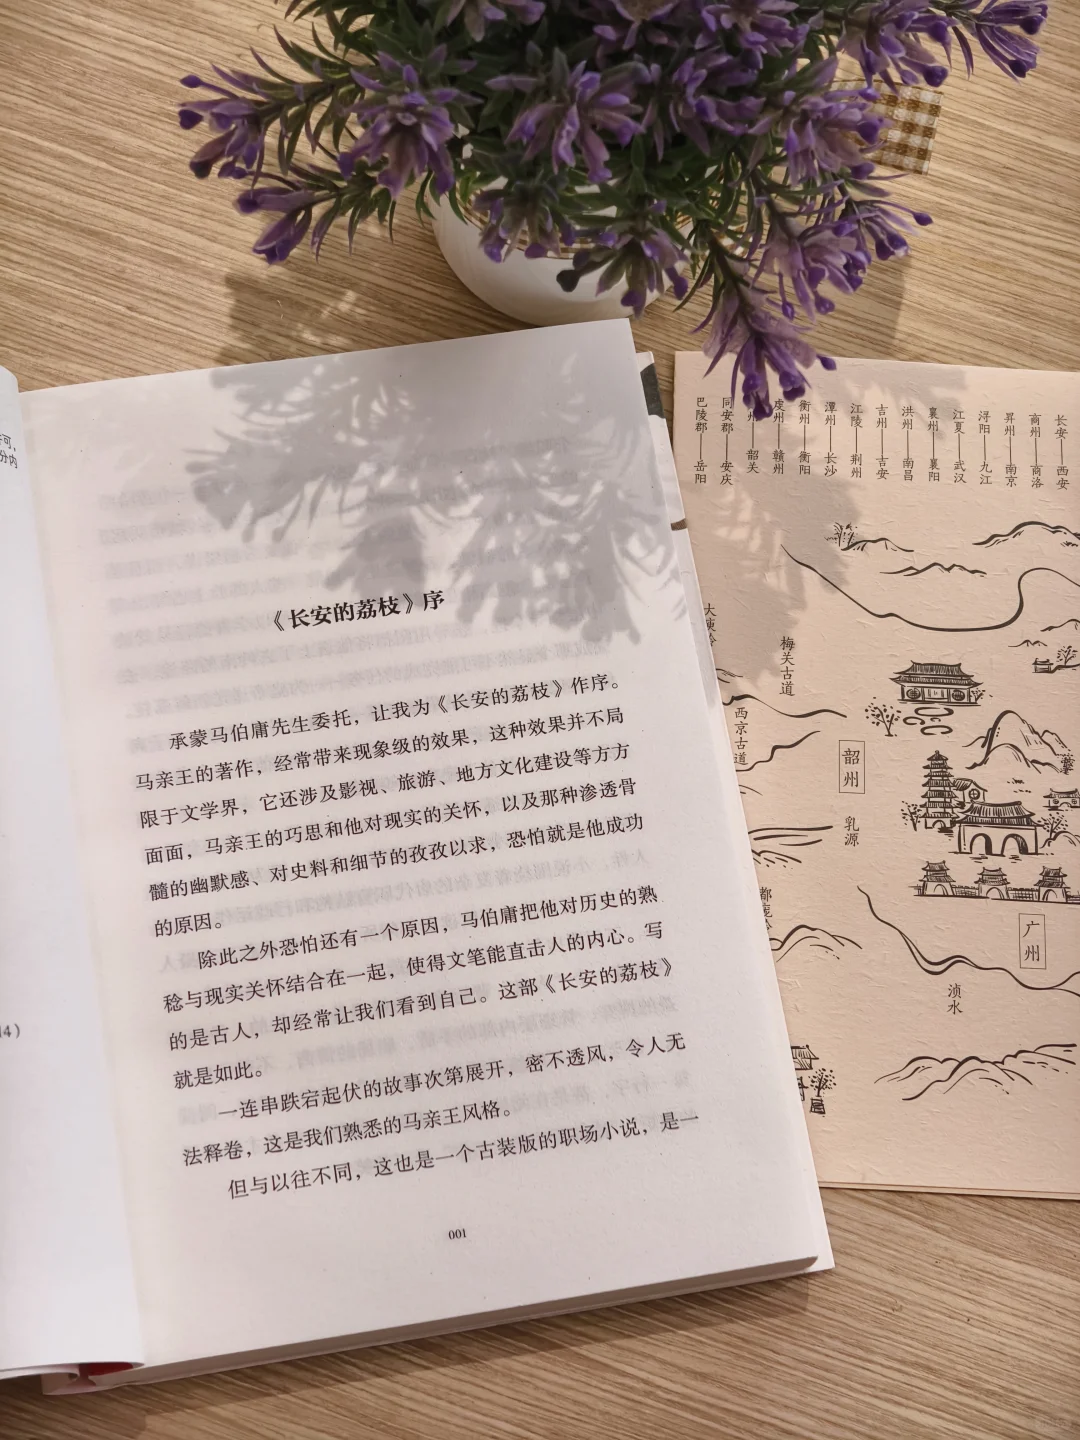 可，
分内
14）
《长安的荔枝》序
承蒙马伯庸先生委托，让我为《长安的荔枝》作序。
马亲王的著作，经常带来现象级的效果，这种效果并不局
限于文学界，它还涉及影视、旅游、地方文化建设等方方
面面，马亲王的巧思和他对现实的关怀，以及那种渗透骨
髓的幽默感、对史料和细节的孜孜以求，恐怕就是他成功
的原因。
除此之外恐怕还有一个原因，马伯庸把他对历史的熟
稔与现实关怀结合在一起，使得文笔能直击人的内心。写
的是古人，却经常让我们看到自己。这部《长安的荔枝》
就是如此。
一连串跌宕起伏的故事次第展开，密不透风，令人无
法释卷，这是我们熟悉的马亲王风格。
但与以往不同，这也是一个古装版的职场小说，是一
001
长安——西安
商州——商洛
昇州——南京
浔阳——九江
江夏——武汉
襄州——襄阳
洪州——南昌
吉州——吉安
江陵——荆州
潭州——长沙
衡州——衡阳
虔州——赣州
州——韶关
同安郡——安庆
巴陵郡——岳阳
大庾岭
梅关古道
西京古道
韶州
乳源
广州
浈水